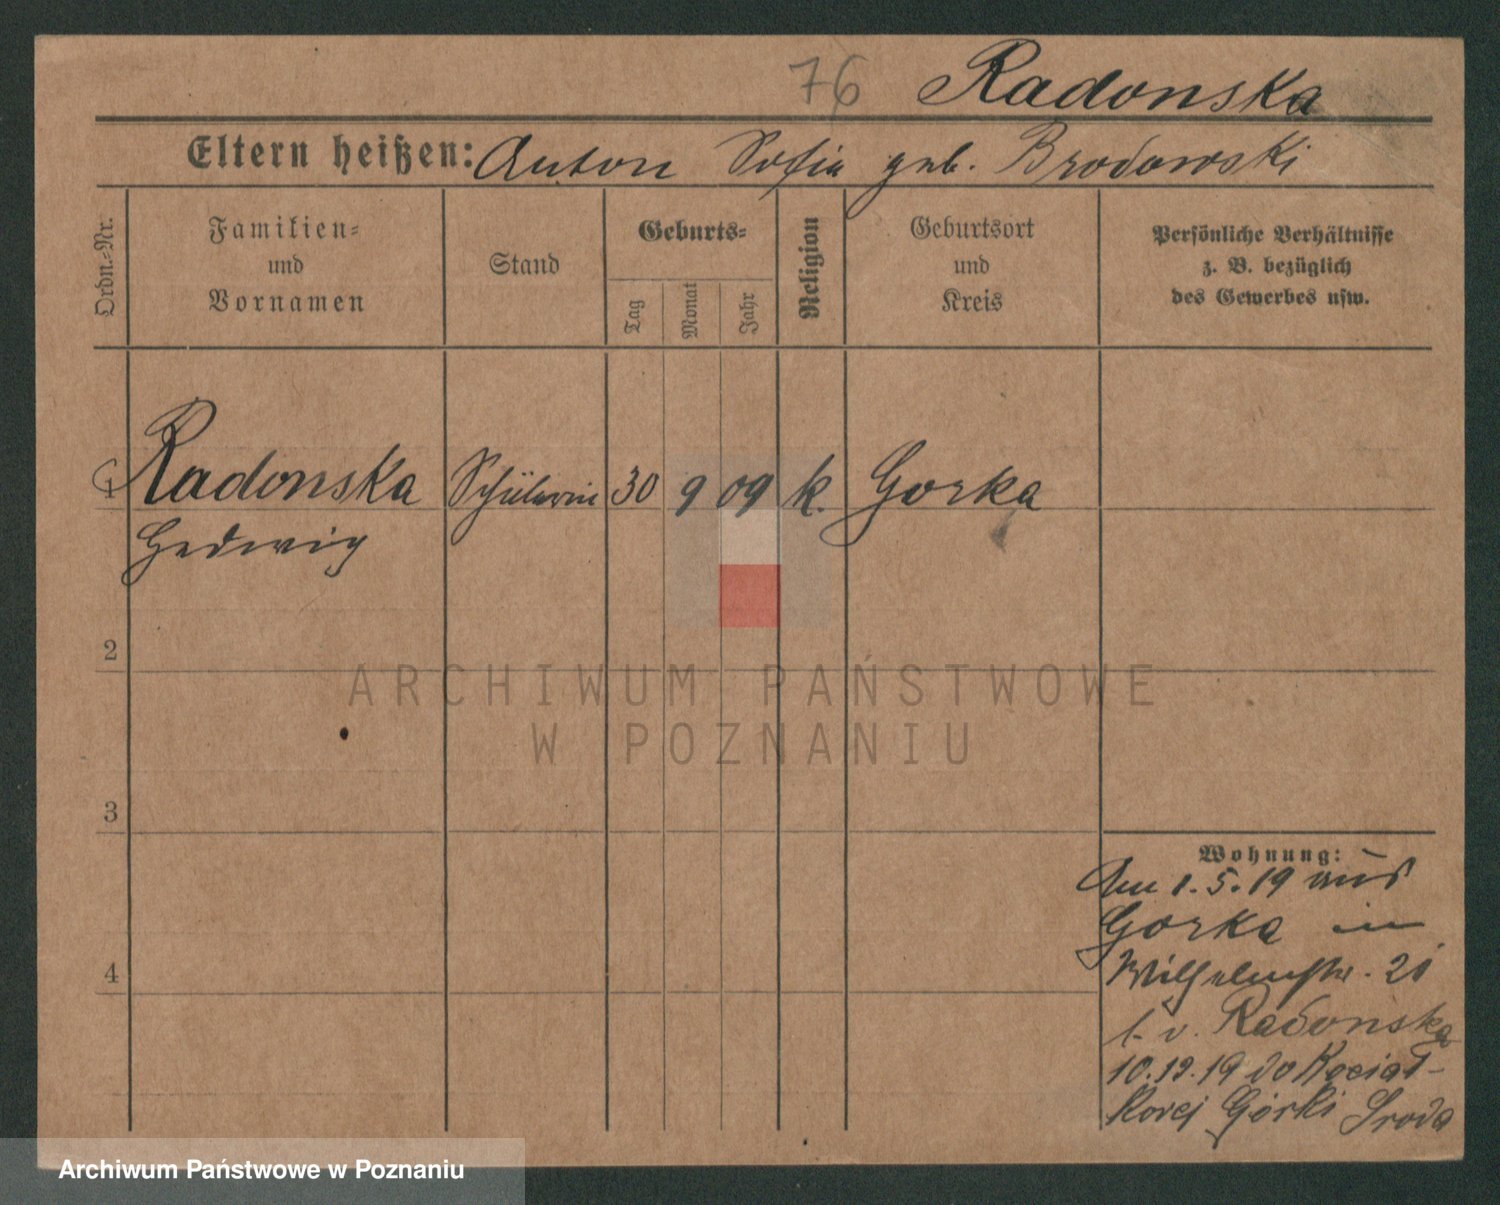 76 Radonska
Eltern heißen: Anton Sofia geb. Brodowski
Ordn.-Nr.
Familien-
und
Vornamen
Stand
Geburts-
Tag
Monat
Jahr
Religion
Geburtsort
und
Kreis
Persönliche Verhältnisse
z. B. bezüglich
des Gewerbes usw.
1 Radonska Schülerin 30 9 09 k. Gorka
Hedwig
2
3
4
Wohnung:
Am 1.5.19 aus
Gorka in
Wilhelmstr. 20
b. v. Radonska
10.12.19 do Kociał-
kowej Górki Sroda
ARCHIWUM PAŃSTWOWE
W POZNANIU
Archiwum Państwowe w Poznaniu